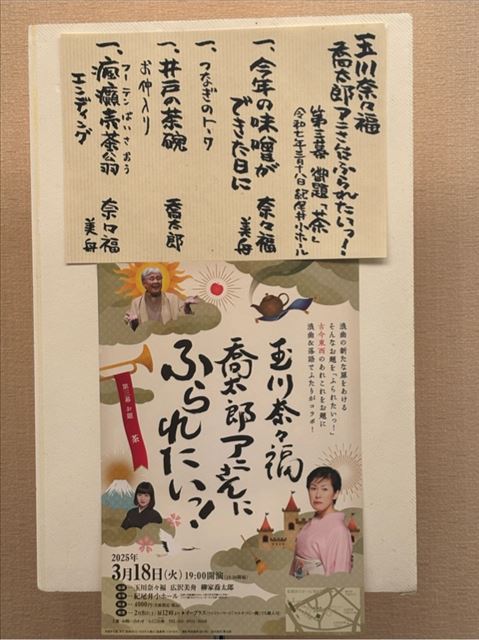 玉川奈々福
喬太郎アニさんにふられたいっ!
第三幕 御題「茶」
令和七年三月十八日 紀尾井小ホール
一、今年の味噌が
できた日に
奈々福
美舟
一、つなぎのトーク
一、井戸の茶碗
喬太郎
お仲入り
一、瘋癲売茶翁
フーテンばいさおう
奈々福
美舟
エンディング
浪曲の新たな扉をあける
そんなお題を「ふられたいっ!」
古今東西のあれこれをお題に
浪曲&落語でふたりがコラボ!
玉川奈々福
喬太郎アニさんに
ふられたいっ!
第三幕 お題 茶
2025年
3月18日(火)19:00開演
玉川奈々福 広沢美舟 柳家喬太郎
紀尾井小ホール
4000円